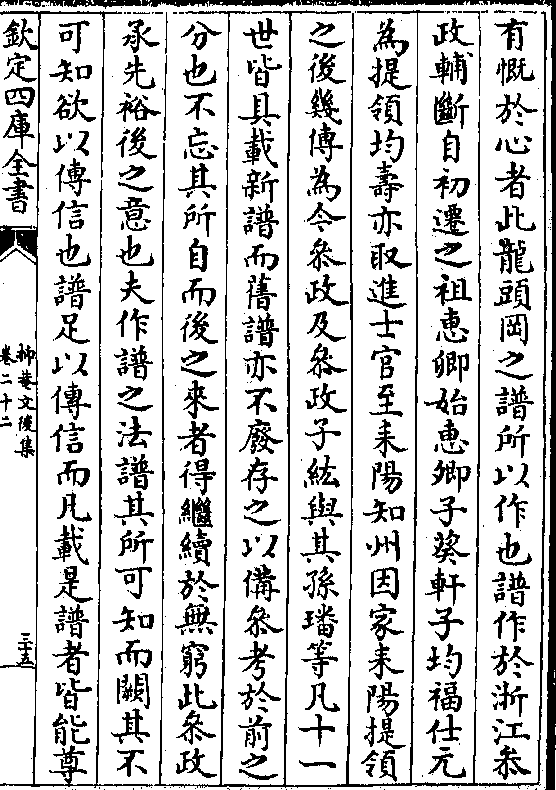 有慨於心者此龍頭岡之譜所以作也譜作於浙江叅
政輔斷自初遷之祖惠卿始惠卿子葵軒子均福仕元
為提領均壽亦取進士官至耒陽知州因家耒陽提領
之後幾傳為今叅政及叅政子紘與其孫璠等凡十一
世皆具載新譜而舊譜亦不廢存之以備叅考於前之
分也不忘其所自而後之來者得繼續於無窮此叅政
承先裕後之意也夫作譜之法譜其所可知而闕其不
可知欲以傳信也譜足以傳信而凡載是譜者皆能尊
欽定四庫全書
抑菴文後集
卷二十二
三十五